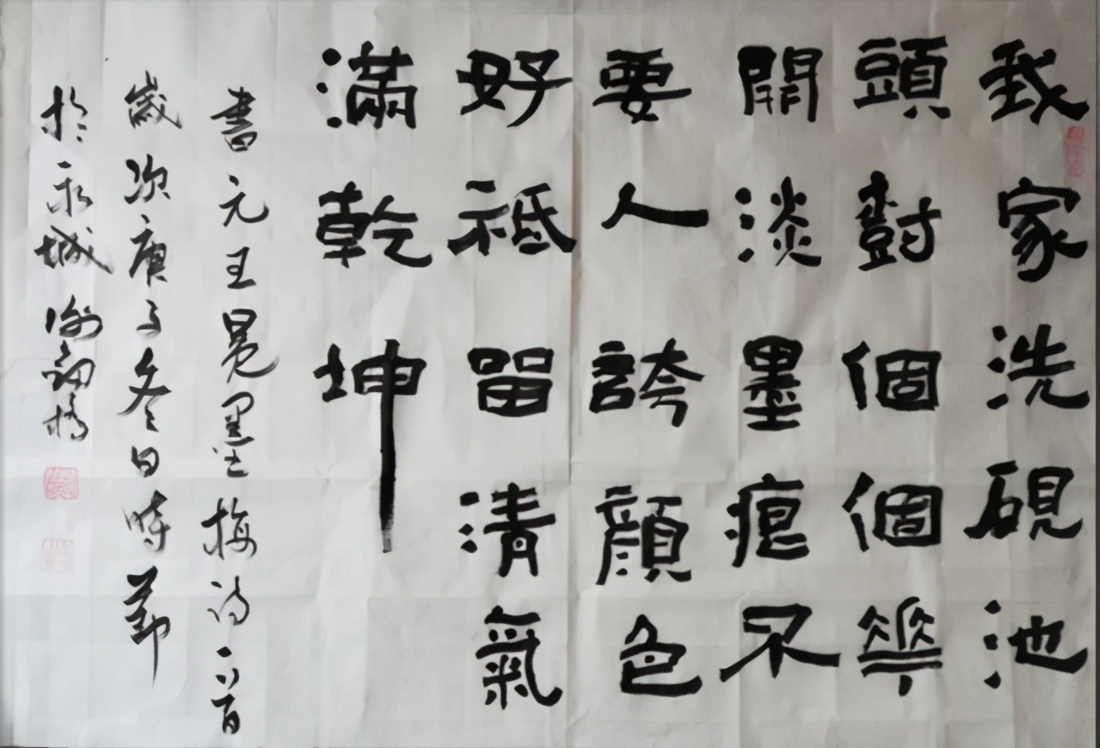 我家洗硯池
頭對個個華
開淡墨痕不
要人誇顏色
好祗留清氣
滿乾坤
書元王冕墨梅詩一首
歲次庚子冬日時節
於永城